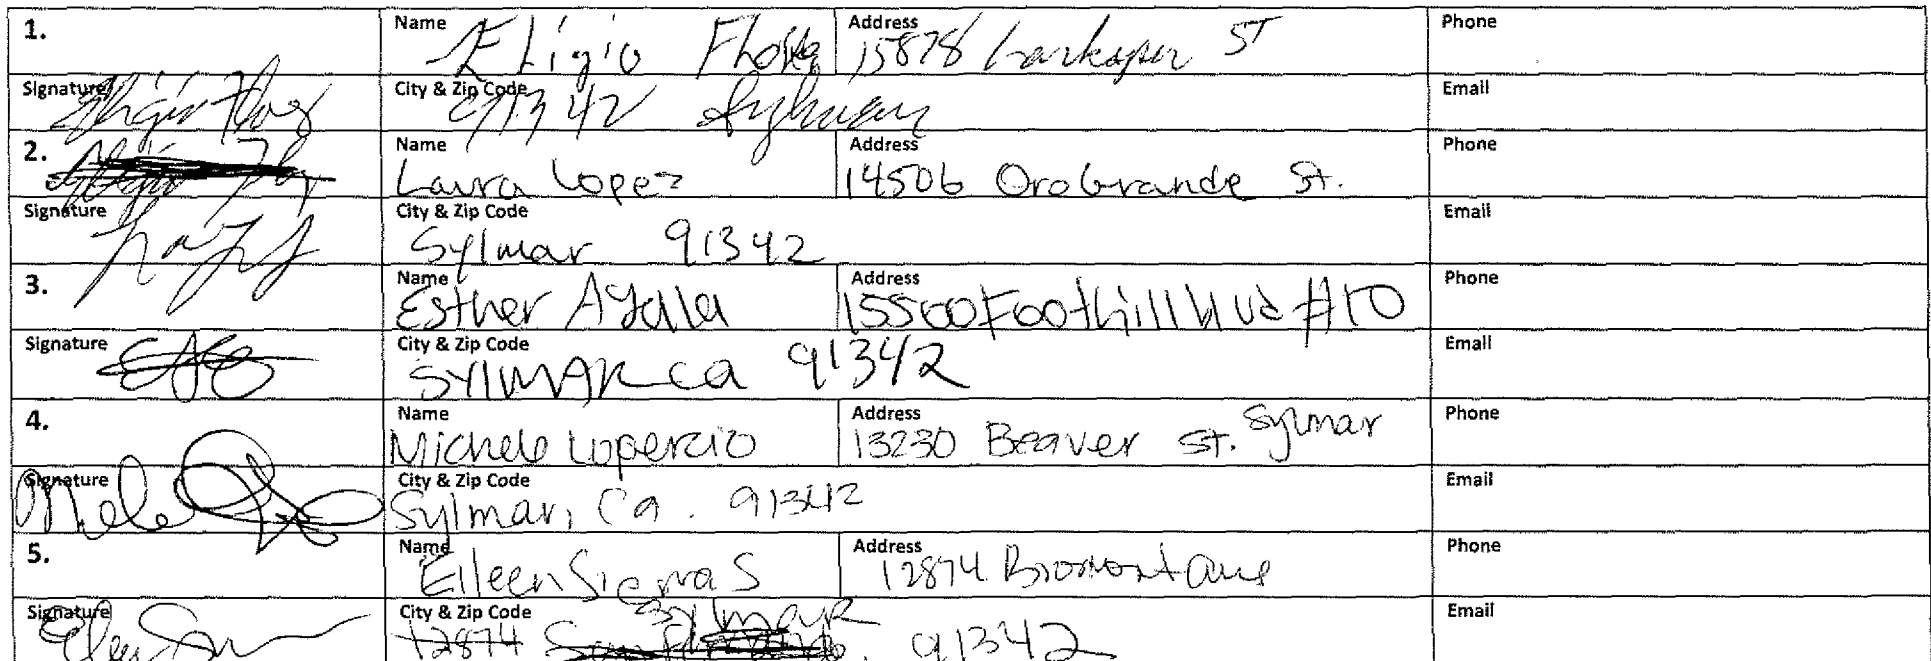 1. Name Eligio Flores Address 15878 Larkspur ST Phone
Signature City & Zip Code 91342 Sylmar Email
2. Name Laura Lopez Address 14506 Oro Grande St. Phone
Signature City & Zip Code Sylmar 91342 Email
3. Name Esther Ayala Address 15500 Foothill blvd #10 Phone
Signature City & Zip Code SYLMAR ca 91342 Email
4. Name Michele Lopercio Address 13230 Beaver st. Sylmar Phone
Signature City & Zip Code Sylmar, Ca. 91342 Email
5. Name Eileen Sierra S Address 12874 Bromont ave Phone
Signature City & Zip Code 12874 Sylmar 91342 Email